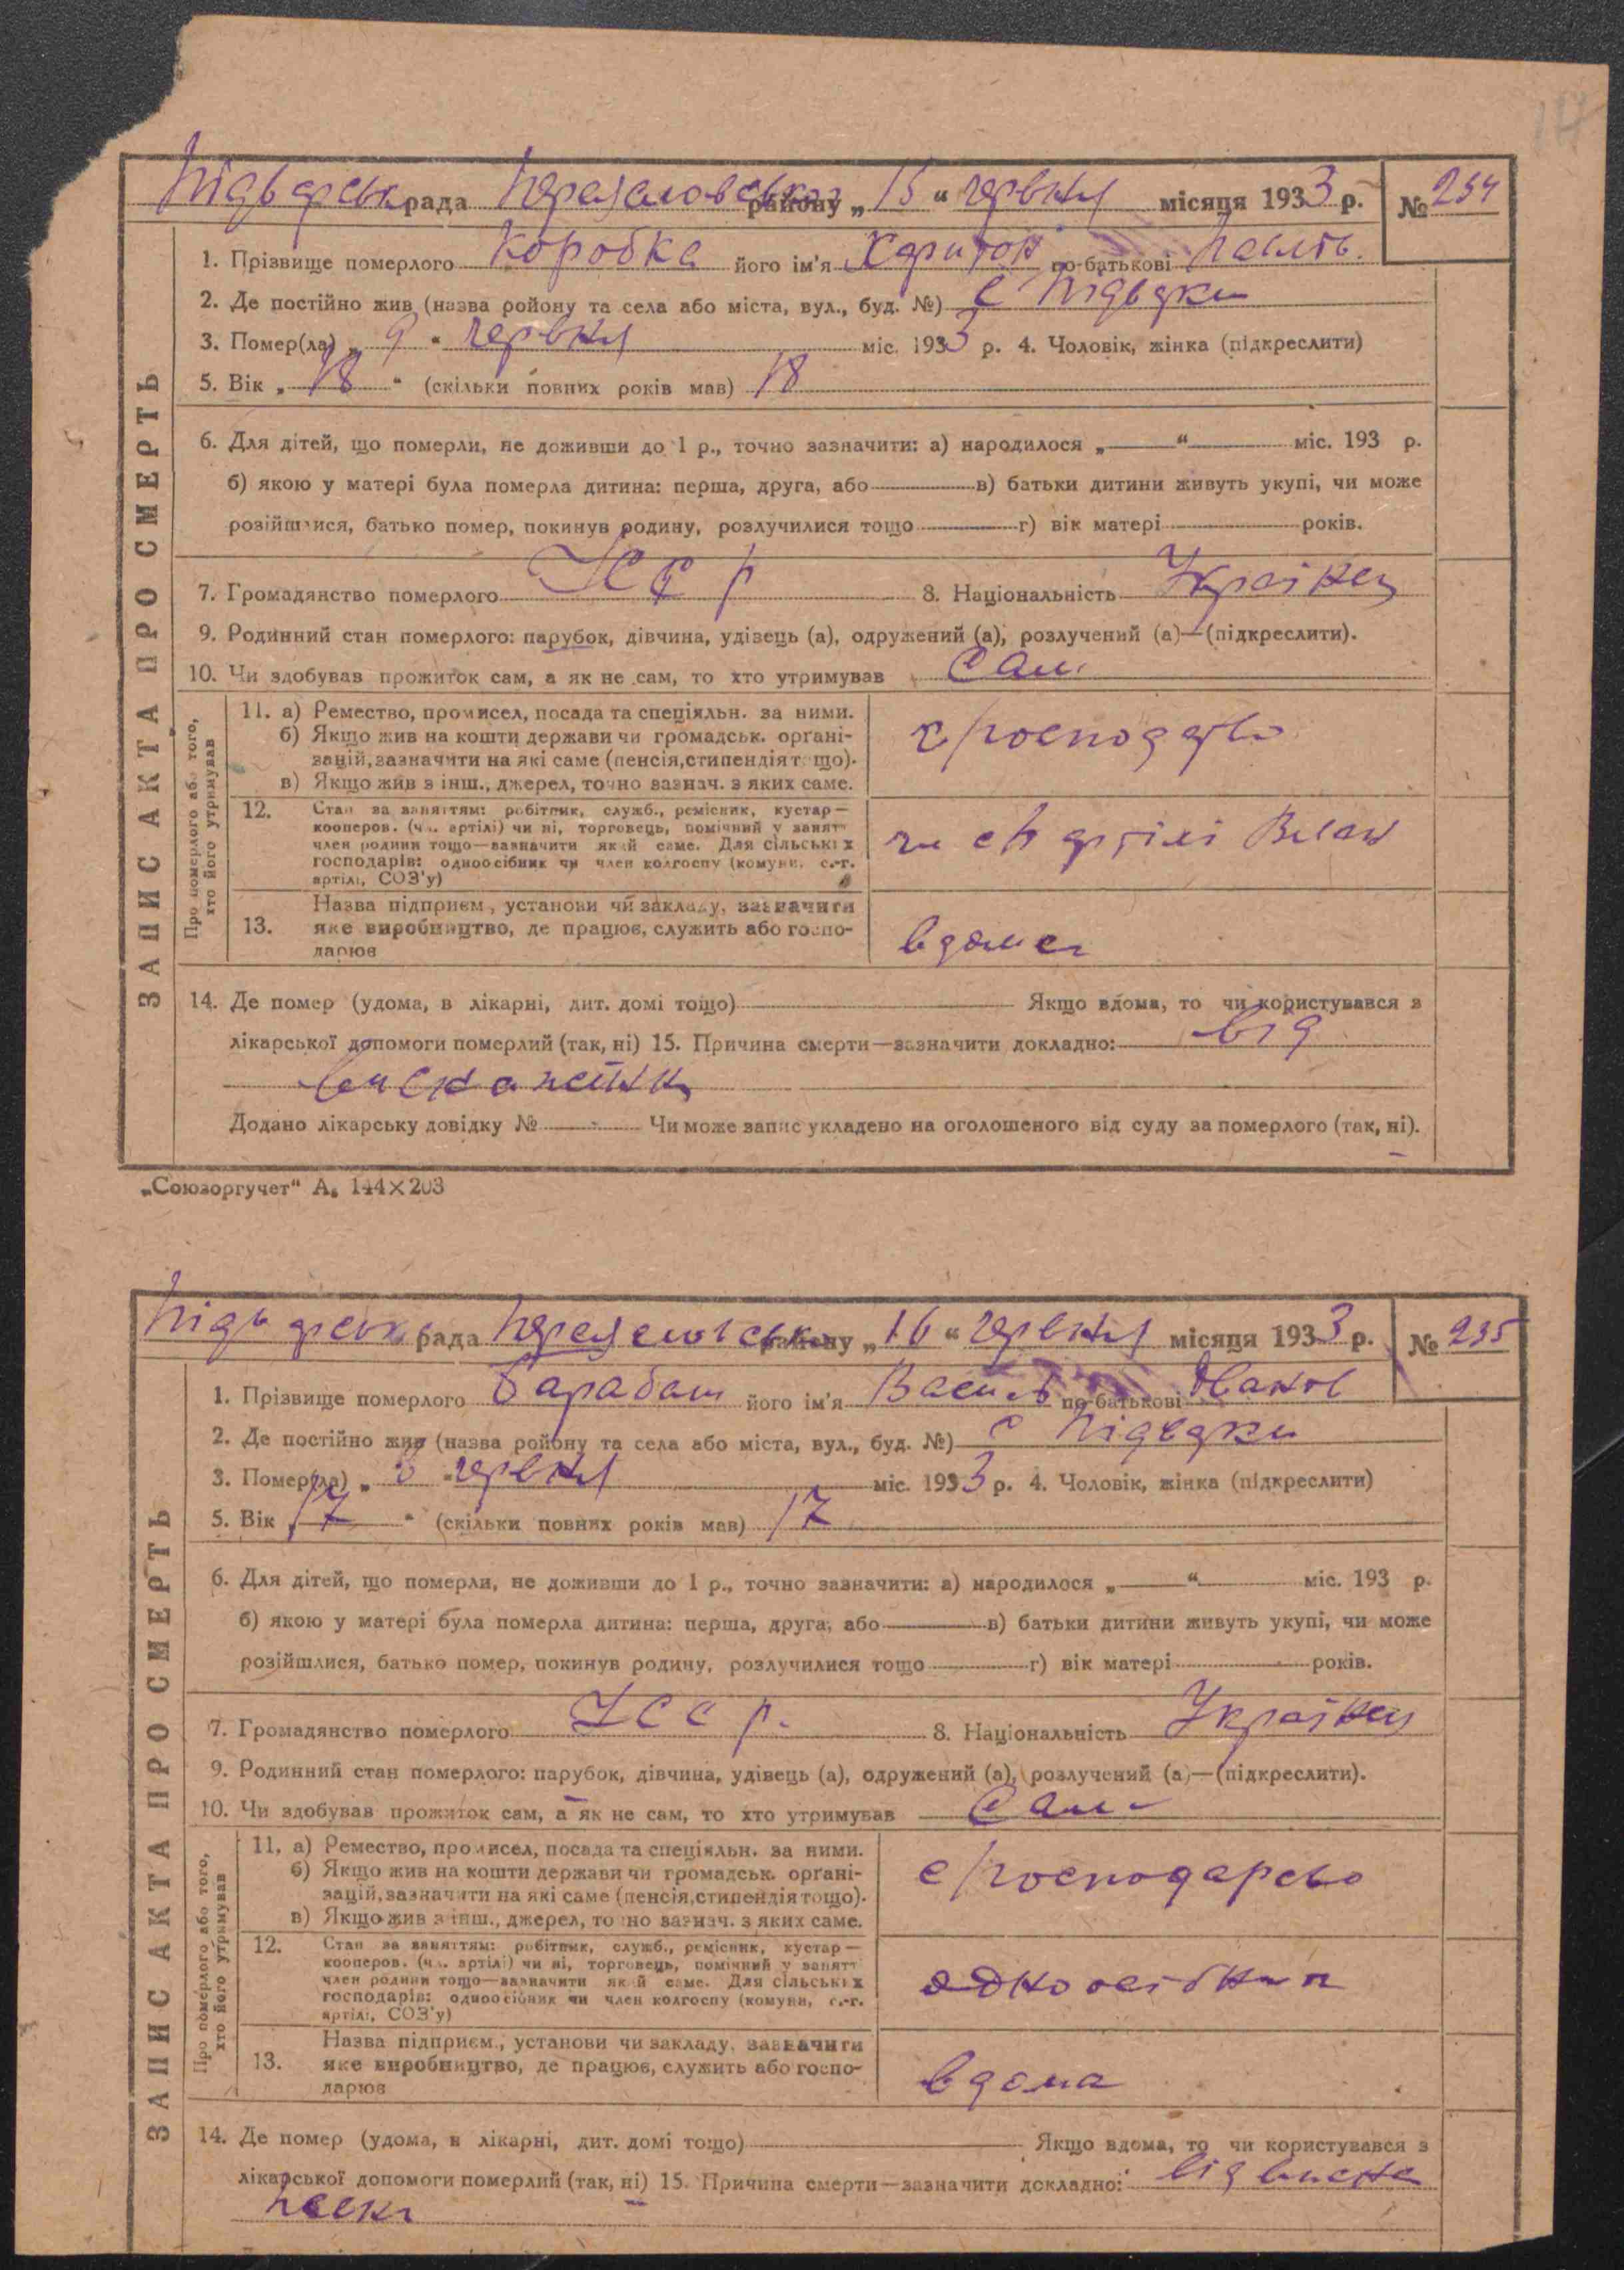 117
Підварська рада Переяловського району „15“ червня місяця 1933 р. № 234
1. Прізвище померлого Коробка його ім'я Харитон по-батькові
2. Де постійно жив (назва ройону та села або міста, вул., буд. №) с Підварки
3. Помер(ла) „9“ червня міс. 1933 р. 4. Чоловік, жінка (підкреслити)
5. Вік „18“ (скільки повних років мав) 18
6. Для дітей, що померли, не доживши до 1 р., точно зазначити: а) народилося „ “ міс. 193 р.
б) якою у матері була померла дитина: перша, друга, або в) батьки дитини живуть укупі, чи може
розійшлися, батько помер, покинув родину, розлучилися тощо г) вік матері років.
7. Громадянство померлого УССР 8. Національність Українец
9. Родинний стан померлого: парубок, дівчина, удівець (а), одружений (а), розлучений (а)—(підкреслити).
10. Чи здобував прожиток сам, а як не сам, то хто утримував Сам
ЗАПИС АКТА ПРО СМЕРТЬ
Про померлого або того, хто його утримував
11. а) Ремество, промисел, посада та спеціяльн. за ними.
б) Якщо жив на кошти держави чи громадськ. органі-
зацій, зазначити на які саме (пенсія, стипендія тощо).
в) Якщо жив з інш., джерел, точно зазнач. з яких саме.
12. Стан за заняттям: робітник, служб., ремісник, кустар—
кооперов. (чл. артілі) чи ні, торговець, помічний у занятт
член родини тощо—зазначити який саме. Для сільських
господарів: одноосібник чи член колгоспу (комуни, с.-г.
артілі, СОЗ'у)
артілі
13. Назва підприєм., установи чи закладу, зазначити
яке виробництво, де працює, служить або госпо-
дарює
вдома
14. Де помер (удома, в лікарні, дит. домі тощо) Якщо вдома, то чи користувався з
лікарської допомоги померлий (так, ні) 15. Причина смерти—зазначити докладно: від
виснаження
Додано лікарську довідку № Чи може запис укладено на оголошеного від суду за померлого (так, ні).
„Союзоргучет“ А₅ 144×203
Підварська рада Переяловського району „16“ червня місяця 1933 р. № 235
1. Прізвище померлого Барабаш його ім'я Василь по-батькові Іванов
2. Де постійно жив (назва ройону та села або міста, вул., буд. №) с Підварки
3. Помер(ла) „ “ червня міс. 1933 р. 4. Чоловік, жінка (підкреслити)
5. Вік „17“ (скільки повних років мав) 17
6. Для дітей, що померли, не доживши до 1 р., точно зазначити: а) народилося „ “ міс. 193 р.
б) якою у матері була померла дитина: перша, друга, або в) батьки дитини живуть укупі, чи може
розійшлися, батько помер, покинув родину, розлучилися тощо г) вік матері років.
7. Громадянство померлого УССР. 8. Національність Українец
9. Родинний стан померлого: парубок, дівчина, удівець (а), одружений (а), розлучений (а)—(підкреслити).
10. Чи здобував прожиток сам, а як не сам, то хто утримував Сам
ЗАПИС АКТА ПРО СМЕРТЬ
Про померлого або того, хто його утримував
11. а) Ремество, промисел, посада та спеціяльн. за ними.
б) Якщо жив на кошти держави чи громадськ. органі-
зацій, зазначити на які саме (пенсія, стипендія тощо).
в) Якщо жив з інш., джерел, точно зазнач. з яких саме.
12. Стан за заняттям: робітник, служб., ремісник, кустар—
кооперов. (чл. артілі) чи ні, торговець, помічний у занятт
член родини тощо—зазначити який саме. Для сільських
господарів: одноосібник чи член колгоспу (комуни, с.-г.
артілі, СОЗ'у)
одноосібник
13. Назва підприєм., установи чи закладу, зазначити
яке виробництво, де працює, служить або госпо-
дарює
вдома
14. Де помер (удома, в лікарні, дит. домі тощо) Якщо вдома, то чи користувався з
лікарської допомоги померлий (так, ні) 15. Причина смерти—зазначити докладно: від